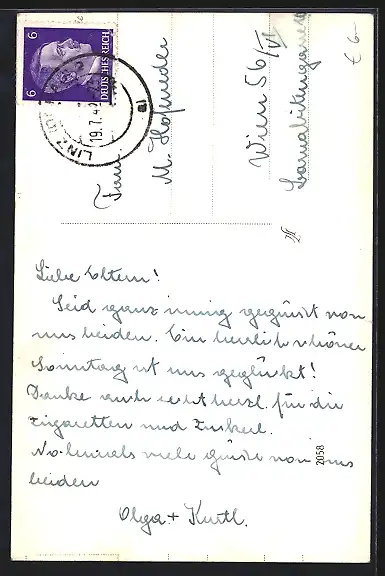 6 6
DEUTSCHES REICH
LINZ (DONAU)
19.7.42
a
Frau
M. Hofmeder
Wien 56/VI
€ 6-
Liebe Eltern!
Seid ganz innig gegrüsst von
uns beiden. Ein herrlich schöner
Sonntag ist uns geglückt!
Danke auch recht herzl. für die
Zigaretten und Zuckerl.
Nochmals viele Grüsse von uns
beiden
Olga + Kurtl.
2058